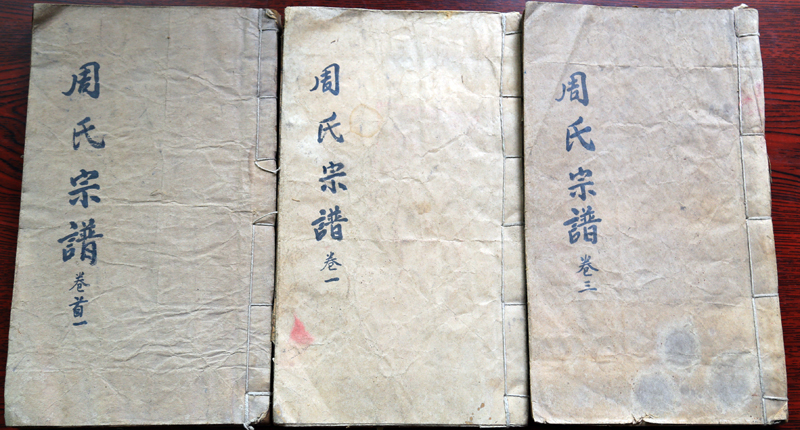 周氏宗譜 卷首一
周氏宗譜 卷一
周氏宗譜 卷三